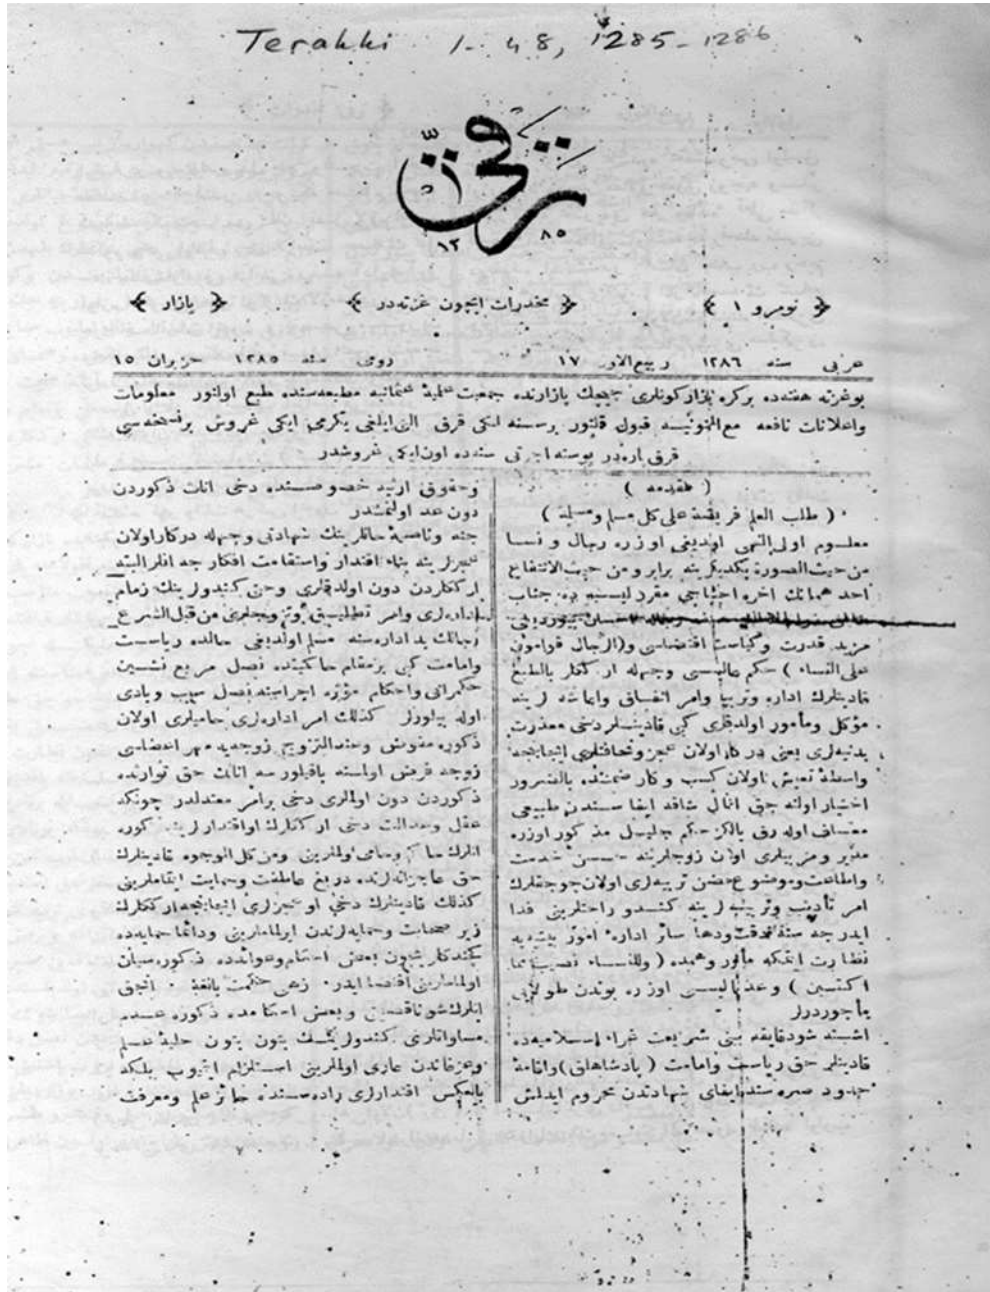 Terakki 1-48, 1285-1286
ترقی
١٢ ٨٥
نومرو ١
مخدرات ایچون غزته‌در
پازار
عربی سنه ١٢٨٦ ربیع‌الاول ١٧ رومی سنه ١٢٨٥ حزیران ١٥
بو غزته هفته‌ده بر کره پازار کونلری چیچك بازارنده جمعیت علمیهٔ عثمانیه مطبعه‌سنده طبع اولنور معلومات
واعلانات نافعه مع‌الممنونیه قبول قلنور بر سنه‌لکی قرق التی‌ایلغی یکرمی ایکی غروش بر نسخه‌سی
قرق پاره‌در پوسته اجرتی سنه‌ده اون‌ایکی غروشدر
( مقدمه )
( طلب العلم فریضة علی کل مسلم ومسلمة )
معلوم اولی‌النهی اولدیغی اوزره رجال و نسا
من حیث‌الصوره یکدیگرینه برابر و من حیث‌الانتفاع
احد همانك اخره احتیاجی مقرر ایسه‌ده جناب
مزید قدرت وکیاست اقتضاسی و(الرجال قوامون
علی النساء ) حکم عالیسی وجهله ارککلر بالطبع
قادینلرك اداره وتربیه وامر انفاق واعاشه لرینه
موکل ومأمور اولدقلری کبی قادینلر دخی معذرت
بدنیه‌لری یعنی درکار اولان عجز ونحافتلری ایجابنجه
واسطهٔ تعیش اولان کسب و کار ضمننده بالضرور
اختیار اولنه‌جق اعمال شاقه ایفاسندن طبیعی
معاف اوله‌رق یالکز حکم جلیل مذکور اوزره
مدبر ومربیلری اولان زوجلرینه حسن خدمت
واطاعت وموضوع حضن تربیه‌لری اولان چوجقلرك
امر تأدیب وتربیه‌لرینه کندو راحتلرینی فدا
ایدرجه‌سنه دقت ودها سائر ادارهٔ امور بیتیه‌یه
نظارت ایتمکه مأمور وعهده ( وللنساء نصیب مما
اکتسبن ) وعد عالیسی اوزره بوندن طولایی
مأجوردرلر
ایشته شو دقایقه مبنی شریعت غراء اسلامیه‌ده
قادینلر حق ریاست وامامت ( پادشاهلق) واقامهٔ
حدود صره‌سنده ایفای شهادتدن محروم ایدلمش
وحقوق ارثیه خصوصنده دخی اناث ذکوردن
دون عد اولنمشدر
ارککلردن دون اولدقلری وحتی کندولرینك زمام
اداره‌لری وامر تطلیق وتزویجلری من قبل الشرع
رجالك ید اداره‌سنه مسلم اولدیغی حالده ریاست
وامامت کبی بر مقام حاکیتده فصل مربع نشین
حکمرانی واحکام مؤثره اجراسنه فصل سبب وبادی
اوله بیلورلر کذلك امر اداره‌لری حامیلری اولان
ذکوره مفوض وعندالتزویج زوجدیه مهر اعطاسی
زوجه فرض اولسنه باقیلورسه اناثك حق توارثده
ذکوردن دون اولمالری دخی بر امر معتدلدر چونکه
عقل وعدالت دخی ارککلرك اواقتدارلرینه کوره
انلرك حاکم وحامی اولمالرینی ومن کل‌الوجوه قادینلرك
حق عاجزانه‌لرنده دریغ عاطفت وحمایت ایتماملرینی
کذلك قادینلرك دخی او عجزلری ایجابنجه ارککلرك
زیر صحابت وحمایه‌لرندن ایرلمامالرینی ودائما حمایه‌ده
اولمالرینی اقتضا ایدر. زهی حکمت بالغه. انجق
انلرك شو ناقصلق وبعض احکامده ذکوره عدم
مساواتلری کندولرینك بتون بتون حلیهٔ علم
وعرفاندن عاری اولمالرینی استلزام ایتمیوب بلکه
بالعکس اقتدارلری راده‌سنده حائز علم ومعرفت